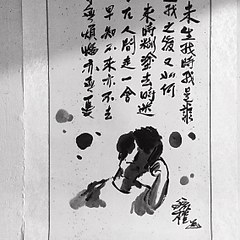 未生我時我是誰
我之後又如何
来時糊塗去時迷
在人間走一會
早知不来亦不去
無煩惱亦無憂